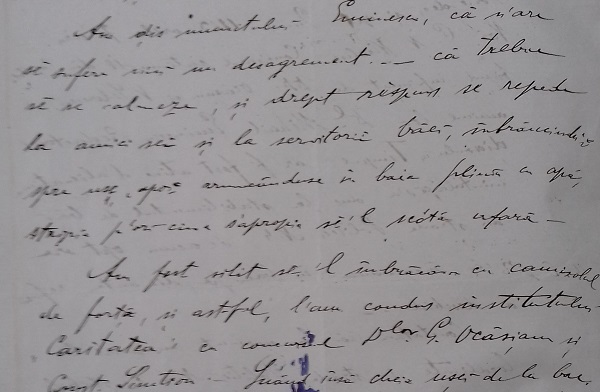 Am zis amicului Eminescu, că n'are
să sufere nici un desagrement — că trebue
să se calmeze, și drept răspuns se repede
la amicii săi și la servitorii băei, îmbrâncindu-i
spre ușe, apoi aruncându-se în baia plină cu apă,
stropia p'ori-cine s'apropia să'l scótă afară —
Am fost silit să'l îmbrăcăm cu camisolul
de forță, și astfel, l'am condus institutului
Caritatea cu concursul Dlor G. Ocășianu și
Const. Simtion — Luând însă cheia ușei de la bae,